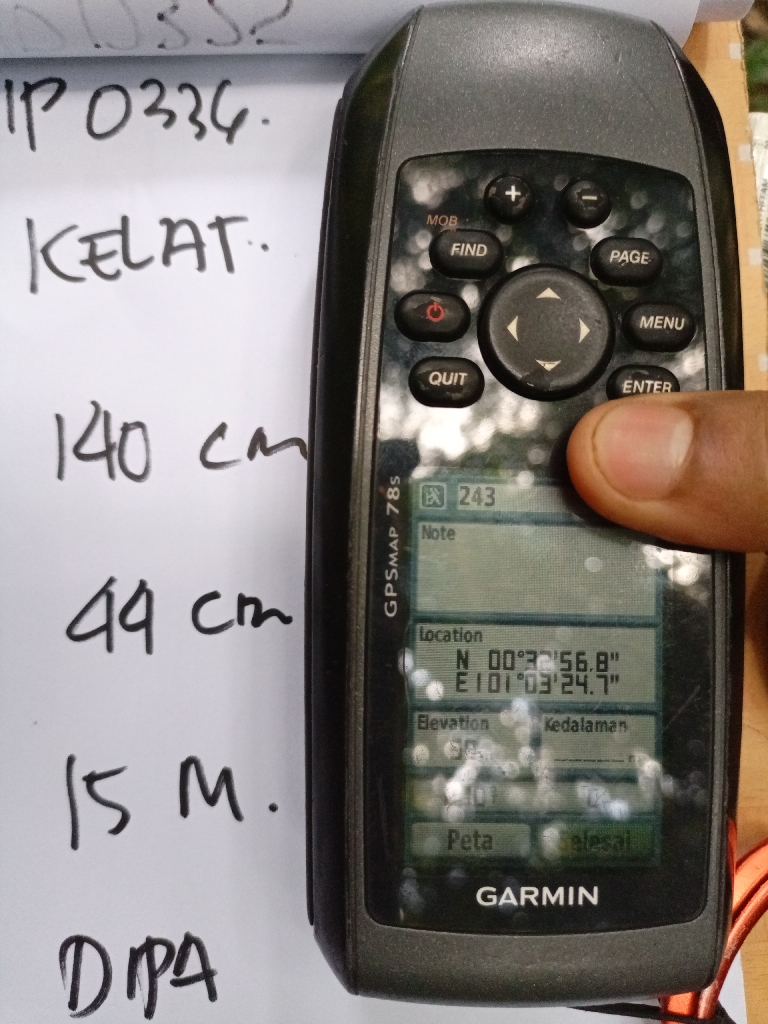 IP 0334.
KELAT.
140 cm
44 cm
15 M.
DIPA
MOB
FIND
PAGE
MENU
QUIT
ENTER
GPSMAP 78s
243
Note
Location
E101°03'24.7"
Elevation
Kedalaman
Peta
GARMIN